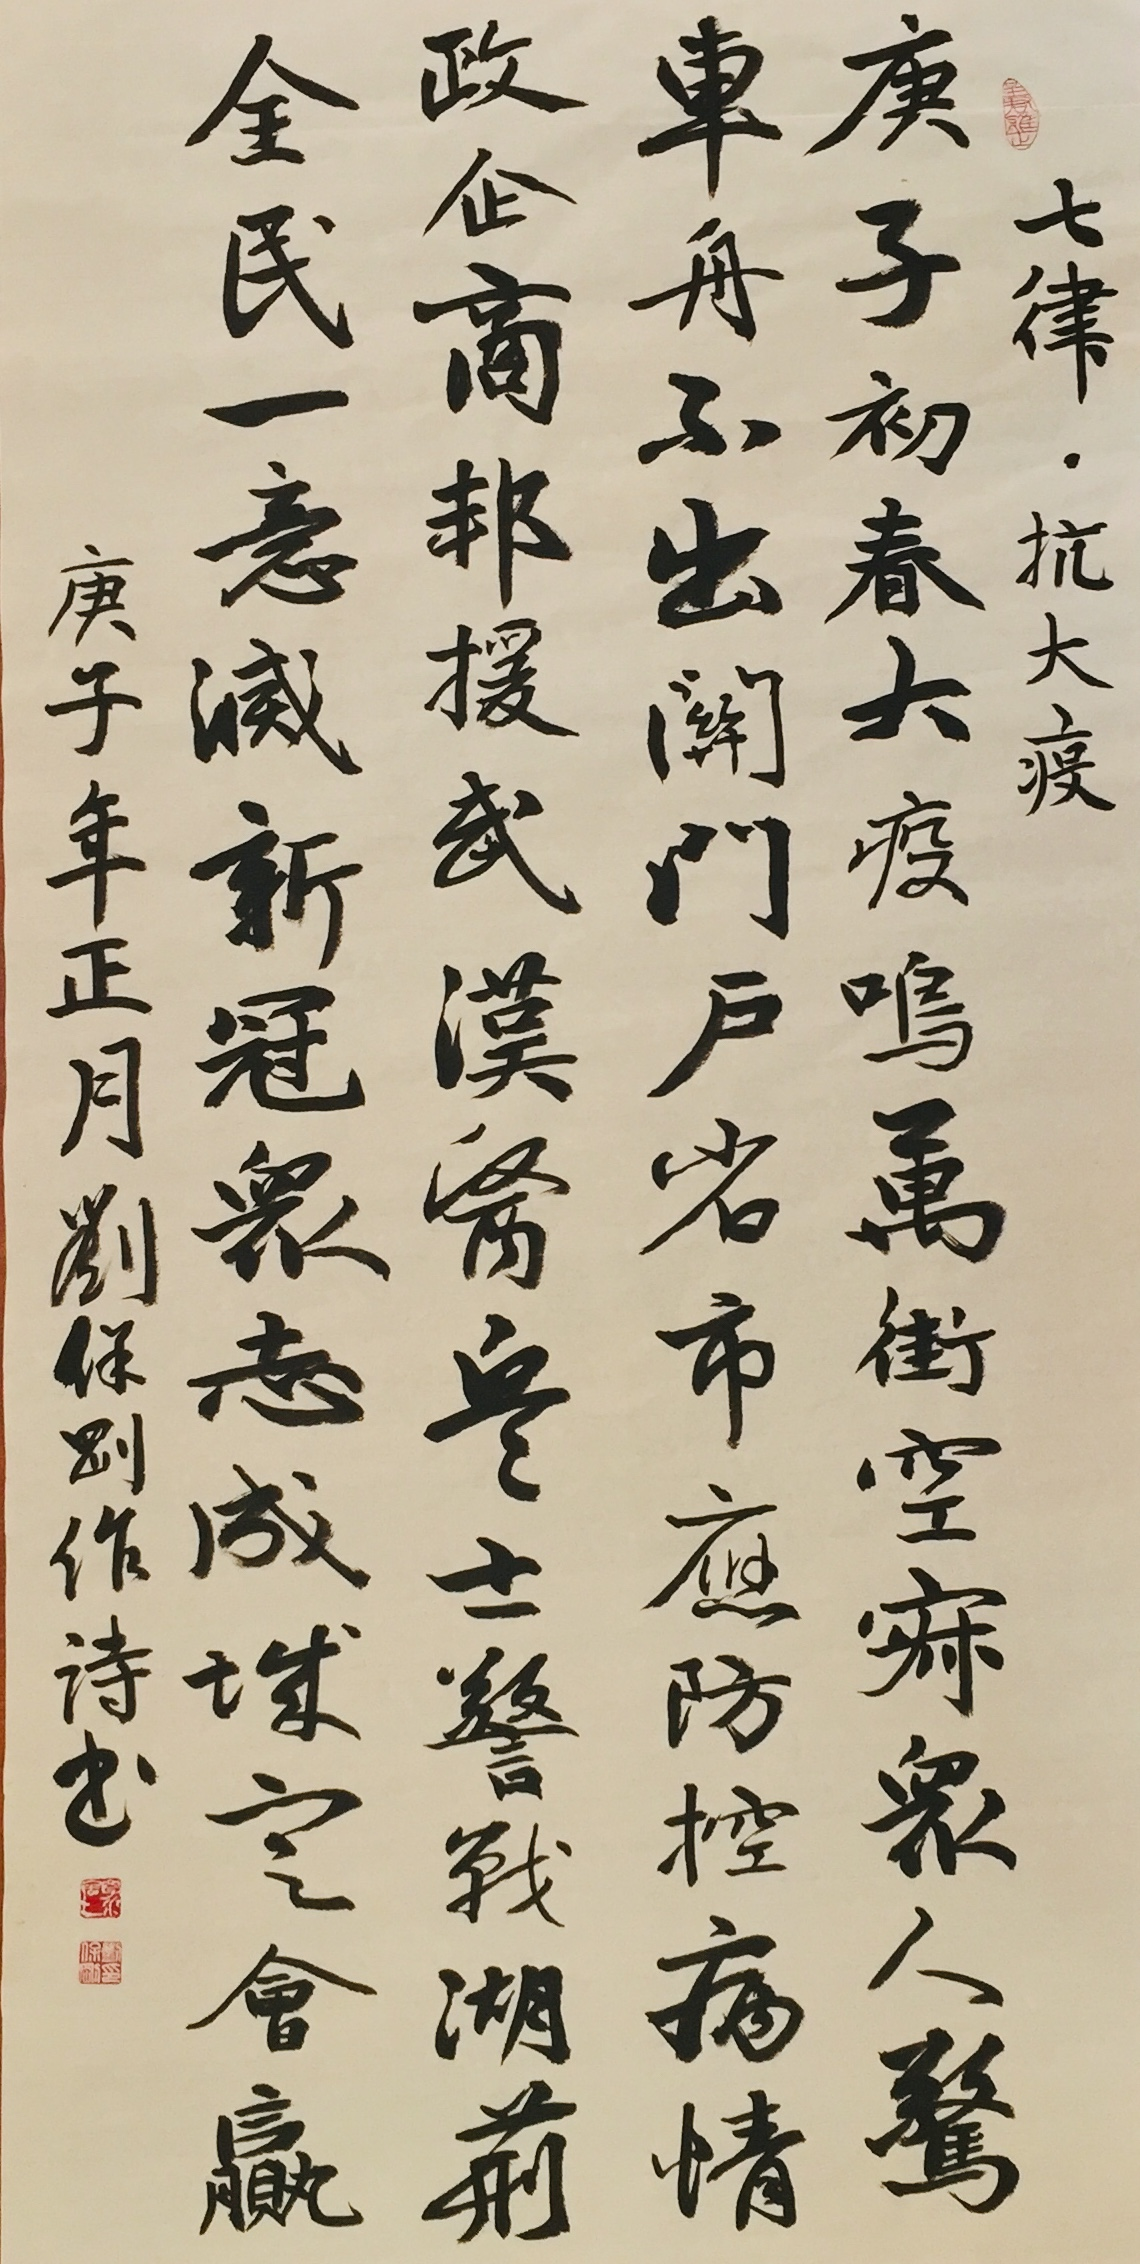 七律·抗大疫
庚子初春大疫鳴萬街空寂衆人驚
車舟不出關門戶省市應防控病情
政企商邦援武漢醫兵士警戰湖荊
全民一意滅新冠衆志成城定會贏
庚子年正月劉保剛作詩书